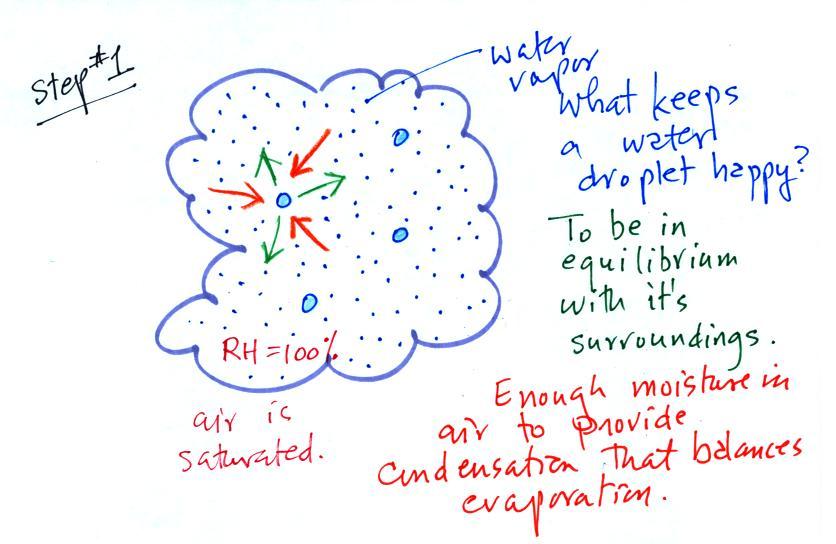 Step #1
water
vapor
What keeps
a water
droplet happy?
To be in
equilibrium
with it's
surroundings.
RH = 100%
air is
saturated.
Enough moisture in
air to provide
condensation that balances
evaporation.